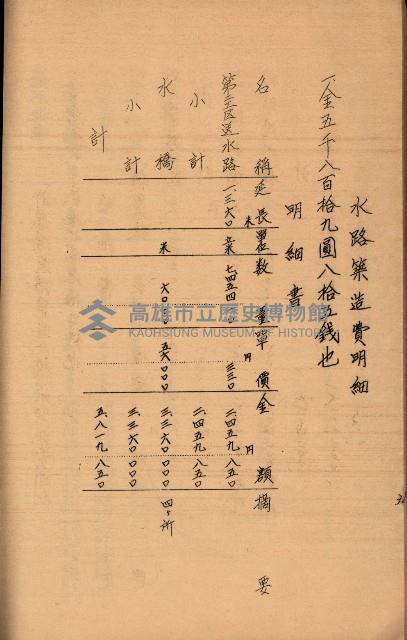 水路築造費明細
一、金五千八百拾九圓八拾五錢也
明細書
名稱 延長 數量 單價 金額 摘要
第三区送水路 一.三六〇 米 七四五四〇 三三〇 円 二.四五九八五〇 円
小計 二.四五九八五〇
水橋 米 六〇 五六〇〇〇 三.三六〇〇〇〇 四ヶ所
小計 三.三六〇〇〇〇
計 五.八一九八五〇
高雄市立歷史博物館
KAOHSIUNG MUSEUM OF HISTORY